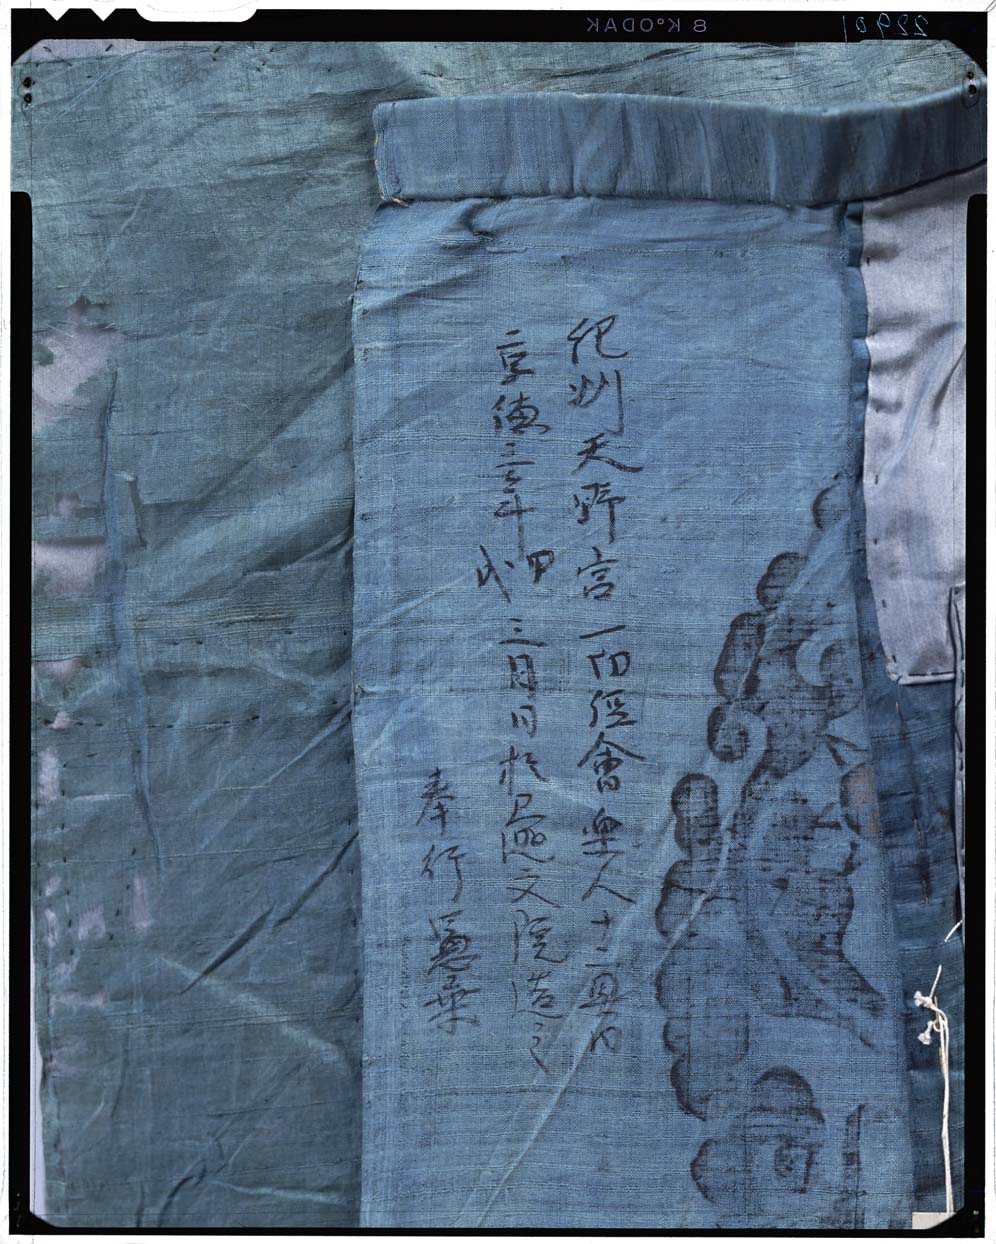 22901
8 KODAK
紀州天野宮一切經會樂人十二具内
享徳三年甲戌三月日於院造之
奉行